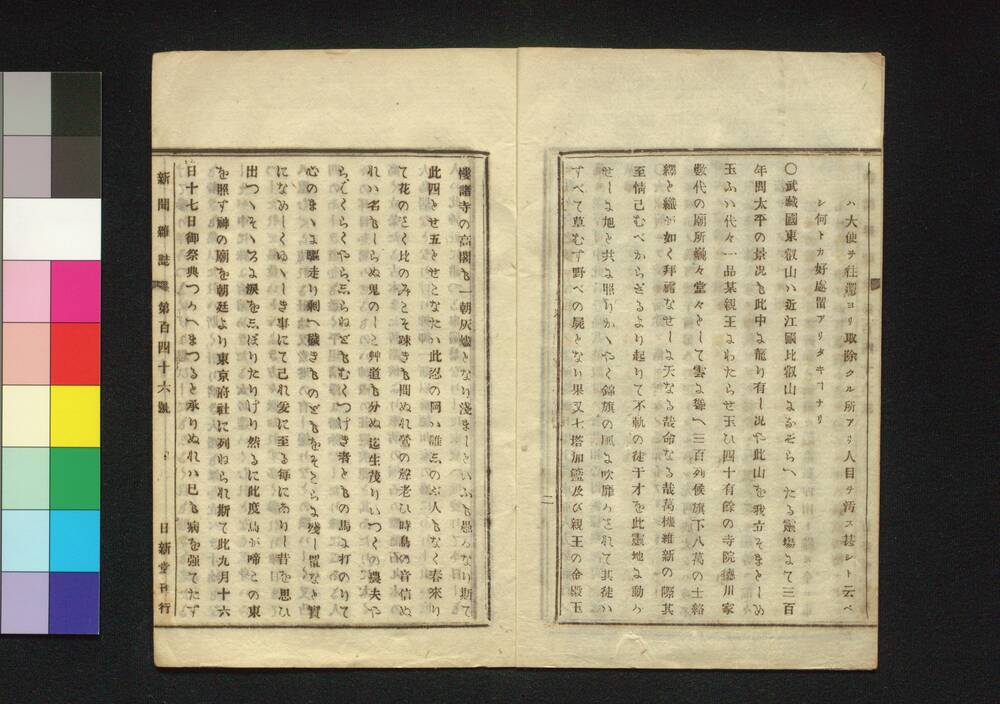 ハ大使ヲ往還ヨリ取除クル所アリ人目ヲ汚ス甚シト云ベ
シ何トカ好處置アリタキヿナリ
○武藏國東叡山ハ近江國比叡山になぞらへたる靈塲にて三百
年間太平の景况も此中に籠り有し况や此山を我立そまとしめ
玉ふハ代々一品某親王にわたらせ玉ひ四十有餘の寺院德川家
數代の廟所巍々堂々として雲に聳へ三百列候旗下八萬の士絡
繹と織が如く拜禱なせしに天なる哉命なる哉萬機維新の際其
至情已むべからざるより起りて不軌の徒干才を此靈地に動か
せしに旭と共に照りかゝやく錦旗の風に吹靡かされて其徒ハ
すべて草むす野べの屍となり果又七塔加籃及び親王の金殿玉
樓諸寺の高閣も一朝灰燼となり淺ましといふも愚かなり斯て
此四とせ五とせとなたハ此忍の岡ハ誰忍のぶ人もなく春來り
て花のさく比のみこそ疎きも問ぬれ鶯の聲老ひ時鳥の音信ぬ
れハ名もしらぬ鬼のしこ艸道も分ぬ迄生茂りいつくの農夫や
らばくらくやら志らねどもむくつけき者ともの馬に打のりて
心のまゝに驅走り剩へ穢きものどもをそこらに殘し置など實
になめしくゆゝしき事にて己れ爰に至る每にありし昔を思ひ
出つゝそゝろに淚を志ぼりたりけり然るに此度鳥が啼との東
を照す神の廟を朝廷より東京府社に列ねられ斯て此九月十六
日十七日御祭典つかへまつると承りぬれハ已も病を強てたず
新聞雜誌 第百四十六號 日新堂刊行
二